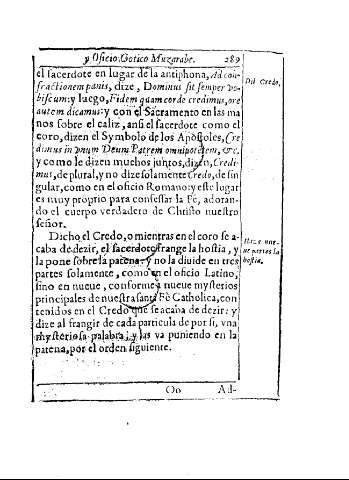 y Oficio Gotico Muzarabe. 289
el sacerdote en lugar de la antiphona, Ad con-
fractionem panis, dize, Dominus sit semper vo-
biscum: y luego, Fidem quam corde credimus, ore
autem dicamus: y con el Sacramento en las ma
nos sobre el caliz, ansi el sacerdote como el
coro, dizen el Symbolo de los Apostoles, Cre
dimus in vnum Deum Patrem omnipotẽtem, &c.
y como le dizen muchos juntos, dizen, Credi-
mus, de plural, y no dize solamente Credo, de sin
gular, como en el oficio Romano: y este lugar
es muy proprio para confessar la Fè, adoran-
do el cuerpo verdadero de Christo nuestro
señor.
Del Credo.
Dicho el Credo, o mientras en el coro se a-
caba de dezir, el sacerdote frange la hostia, y
la pone sobre la patena, y no la diuide en tres
partes solamente, como en el oficio Latino,
sino en nueue, conforme a nueue mysterios
principales de nuestra santa Fè Catholica, con
tenidos en el Credo que se acaba de dezir: y
dize al frangir de cada particula de por si, vna
mysteriosa palabra; y las va puniendo en la
patena, por el orden siguiente.
Haze nue-
ue partes la
hostia.
Oo Ad-